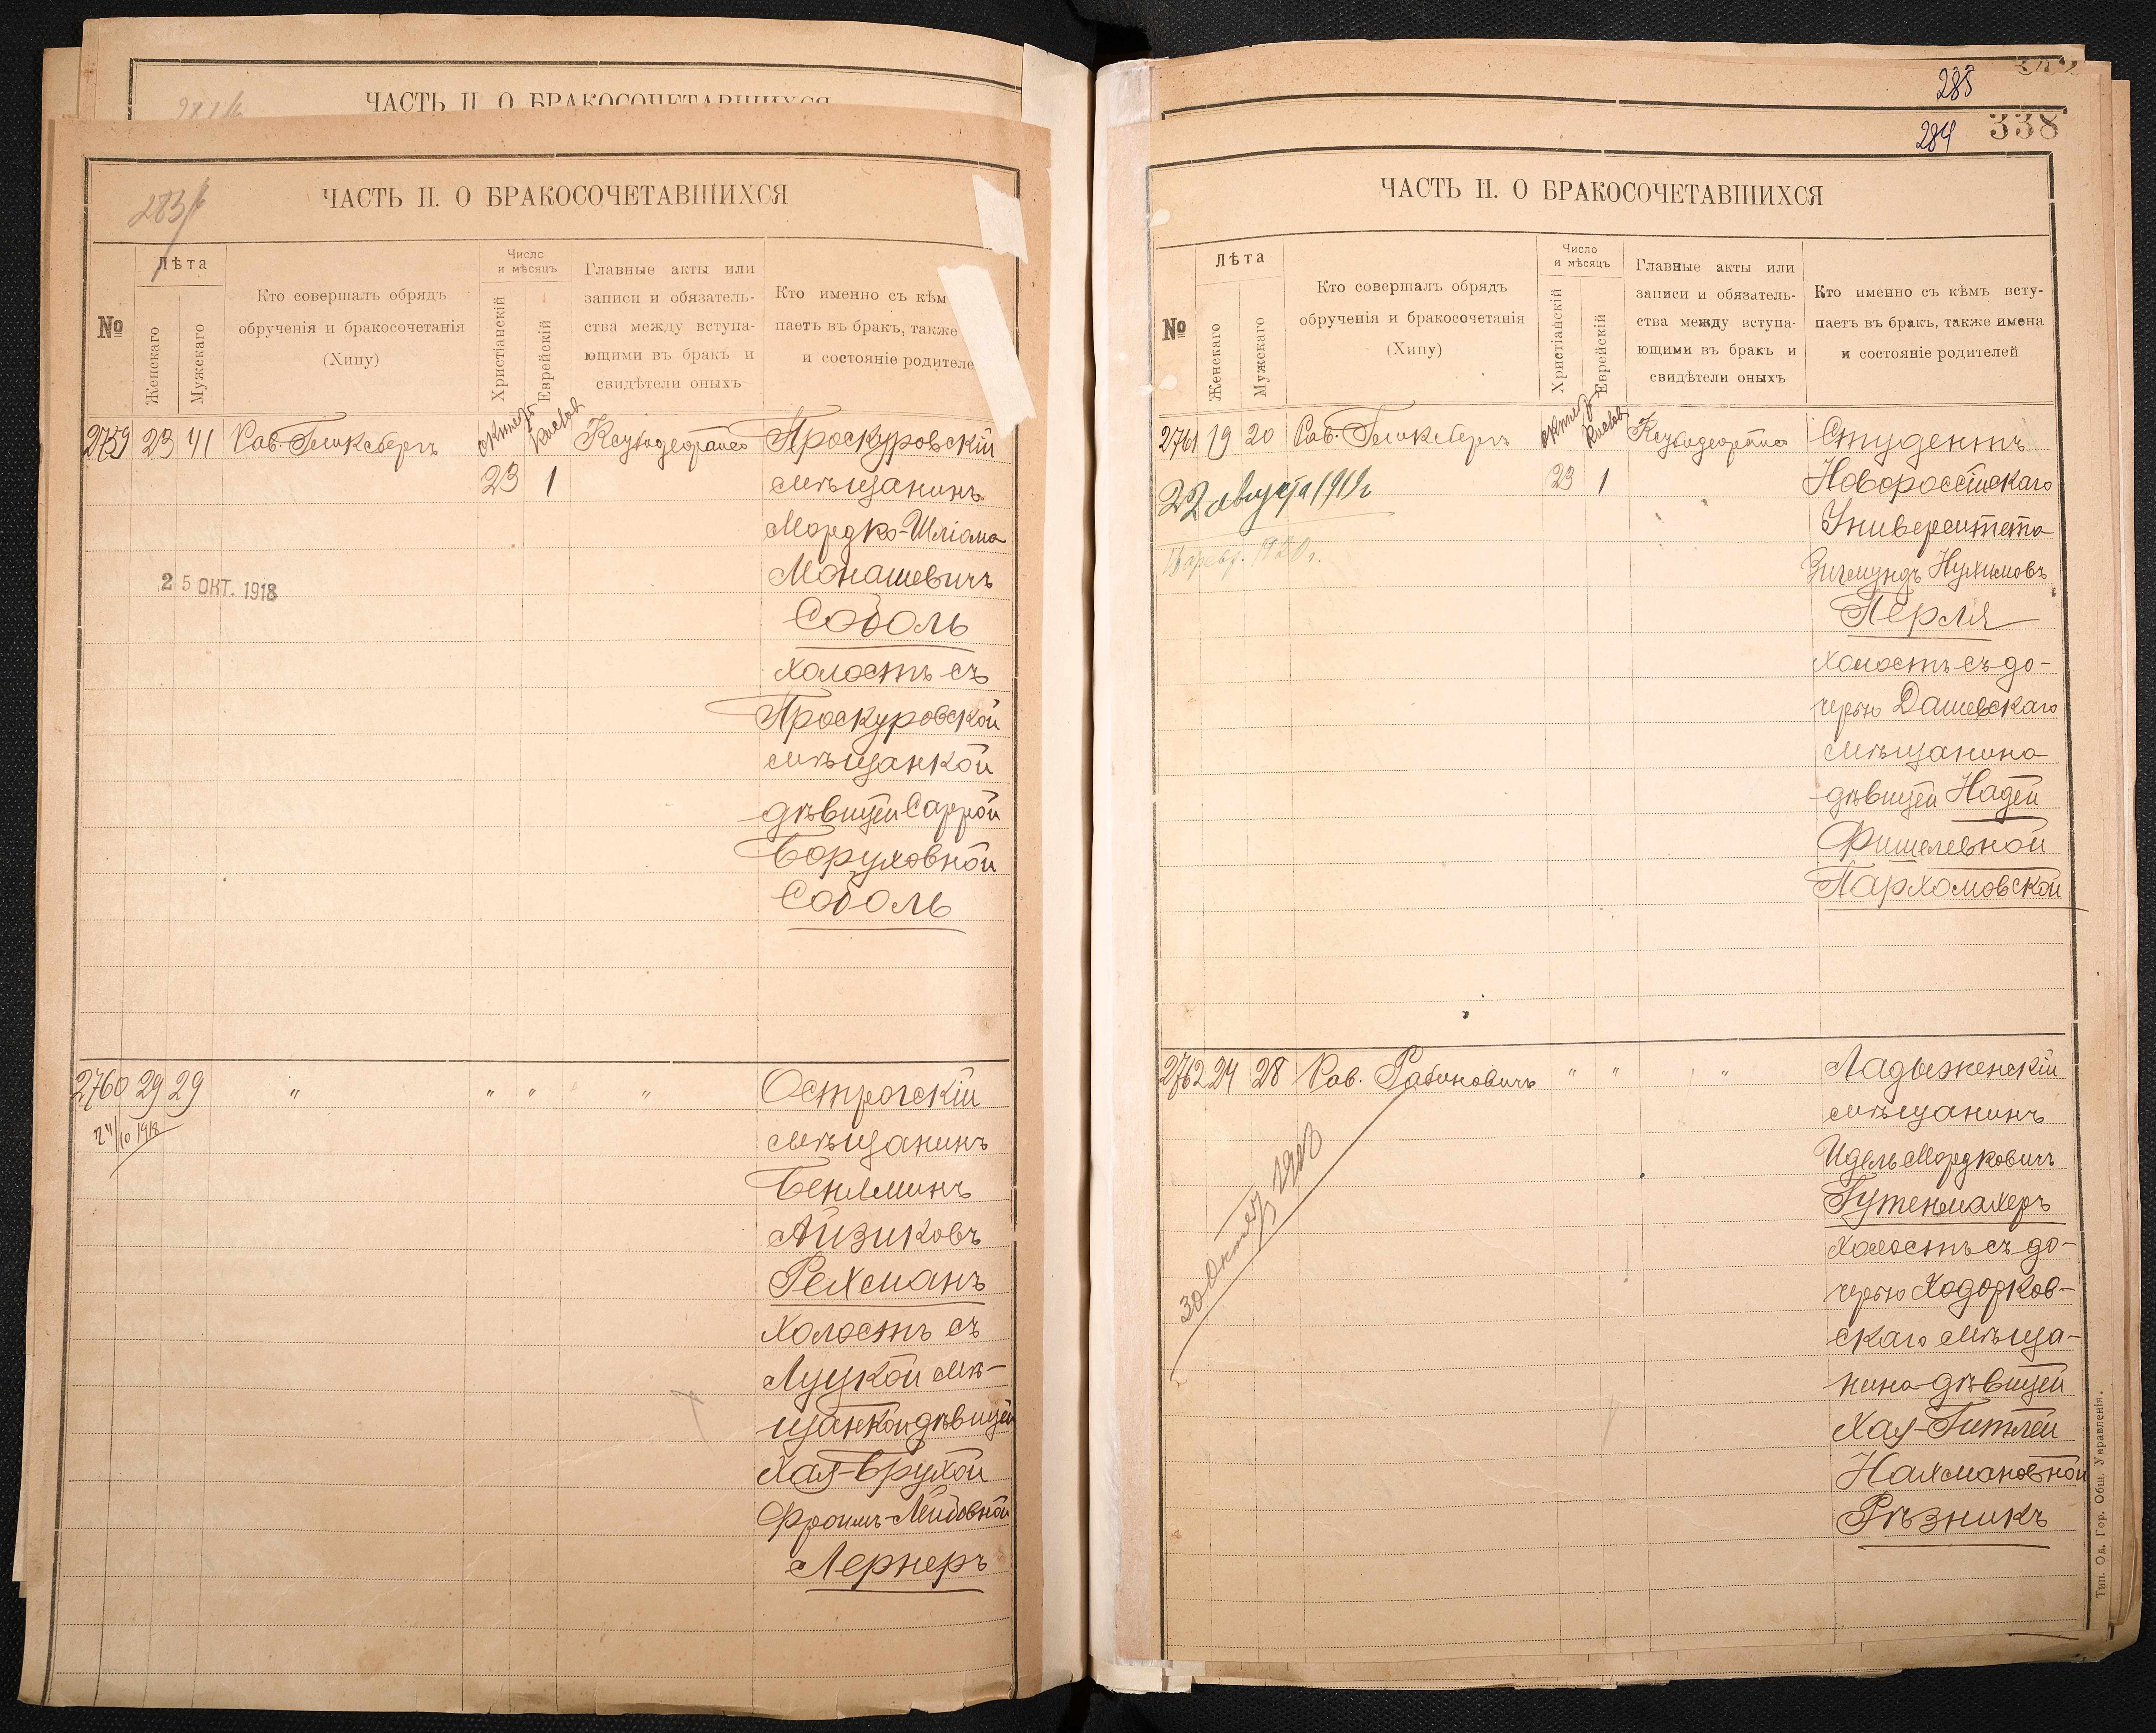 ЧАСТЬ II. О БРАКОСОЧЕТАВШИХСЯ
ЧАСТЬ II. О БРАКОСОЧЕТАВШИХСЯ
№
Лѣта
Женскаго
Мужскаго
Кто совершалъ обрядъ
обрученія и бракосочетанія
(Хипу)
Число
и мѣсяцъ
Христіанскій
Еврейскій
Главные акты или
записи и обязатель-
ства между вступа-
ющими въ бракъ и
свидѣтели оныхъ
Кто именно съ кѣм
паетъ въ бракъ, также
и состояніе родителе
2759 23 41 Рав. Гликсбергъ Проскуровскій
23 1 мѣщанинъ
Мордко-Шліома
Монашевичъ
2 5 ОКТ. 1918
Соболь
холостъ съ
Проскуровской
мѣщанкой
дѣвицей Саррой
Боруховной
Соболь
2760 29 29 " " " " Острогскій
24/10 1918 мѣщанинъ
Беніаминъ
Айзиковъ
Рехманъ
холостъ съ
Луцкой мѣ-
щанкой дѣвицей
Хая-Брухой
Фроимъ-Лейбовной
Лернеръ
285
284 338
ЧАСТЬ II. О БРАКОСОЧЕТАВШИХСЯ
№
Лѣта
Женскаго
Мужскаго
Кто совершалъ обрядъ
обрученія и бракосочетанія
(Хипу)
Число
и мѣсяцъ
Христіанскій
Еврейскій
Главные акты или
записи и обязатель-
ства между вступа-
ющими въ бракъ и
свидѣтели оныхъ
Кто именно съ кѣмъ всту-
паетъ въ бракъ, также имена
и состояніе родителей
2761 19 20 Рав. Гликсбергъ Студентъ
23 1 Новороссійскаго
22 августа 1919г.
Университета
Зигмундъ Нухимовъ
Перля
холостъ съ до-
черью Дашевскаго
мѣщанина
дѣвицей Надей
Фишелевной
Пархомовской
2762 24 28 Рав. Рабиновичъ " " " Ладыженскій
мѣщанинъ
Идель Мордковичъ
Гутенмахеръ
холостъ съ до-
черью Ходорков-
скаго мѣща-
нина дѣвицей
Хая-Гитлей
Нахмановной
Рѣзникъ
30 Октяб 1918
Тип. Од. Гор. Общ. Управленія.